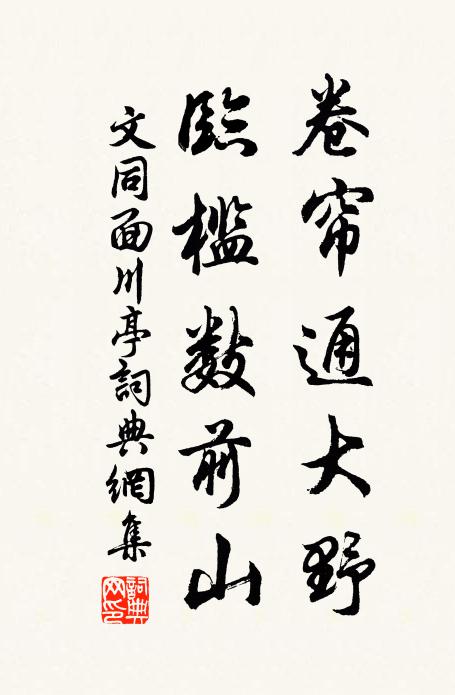 卷帘通大野
臨檻数前山
文同面川亭詞典網集
詞典网印